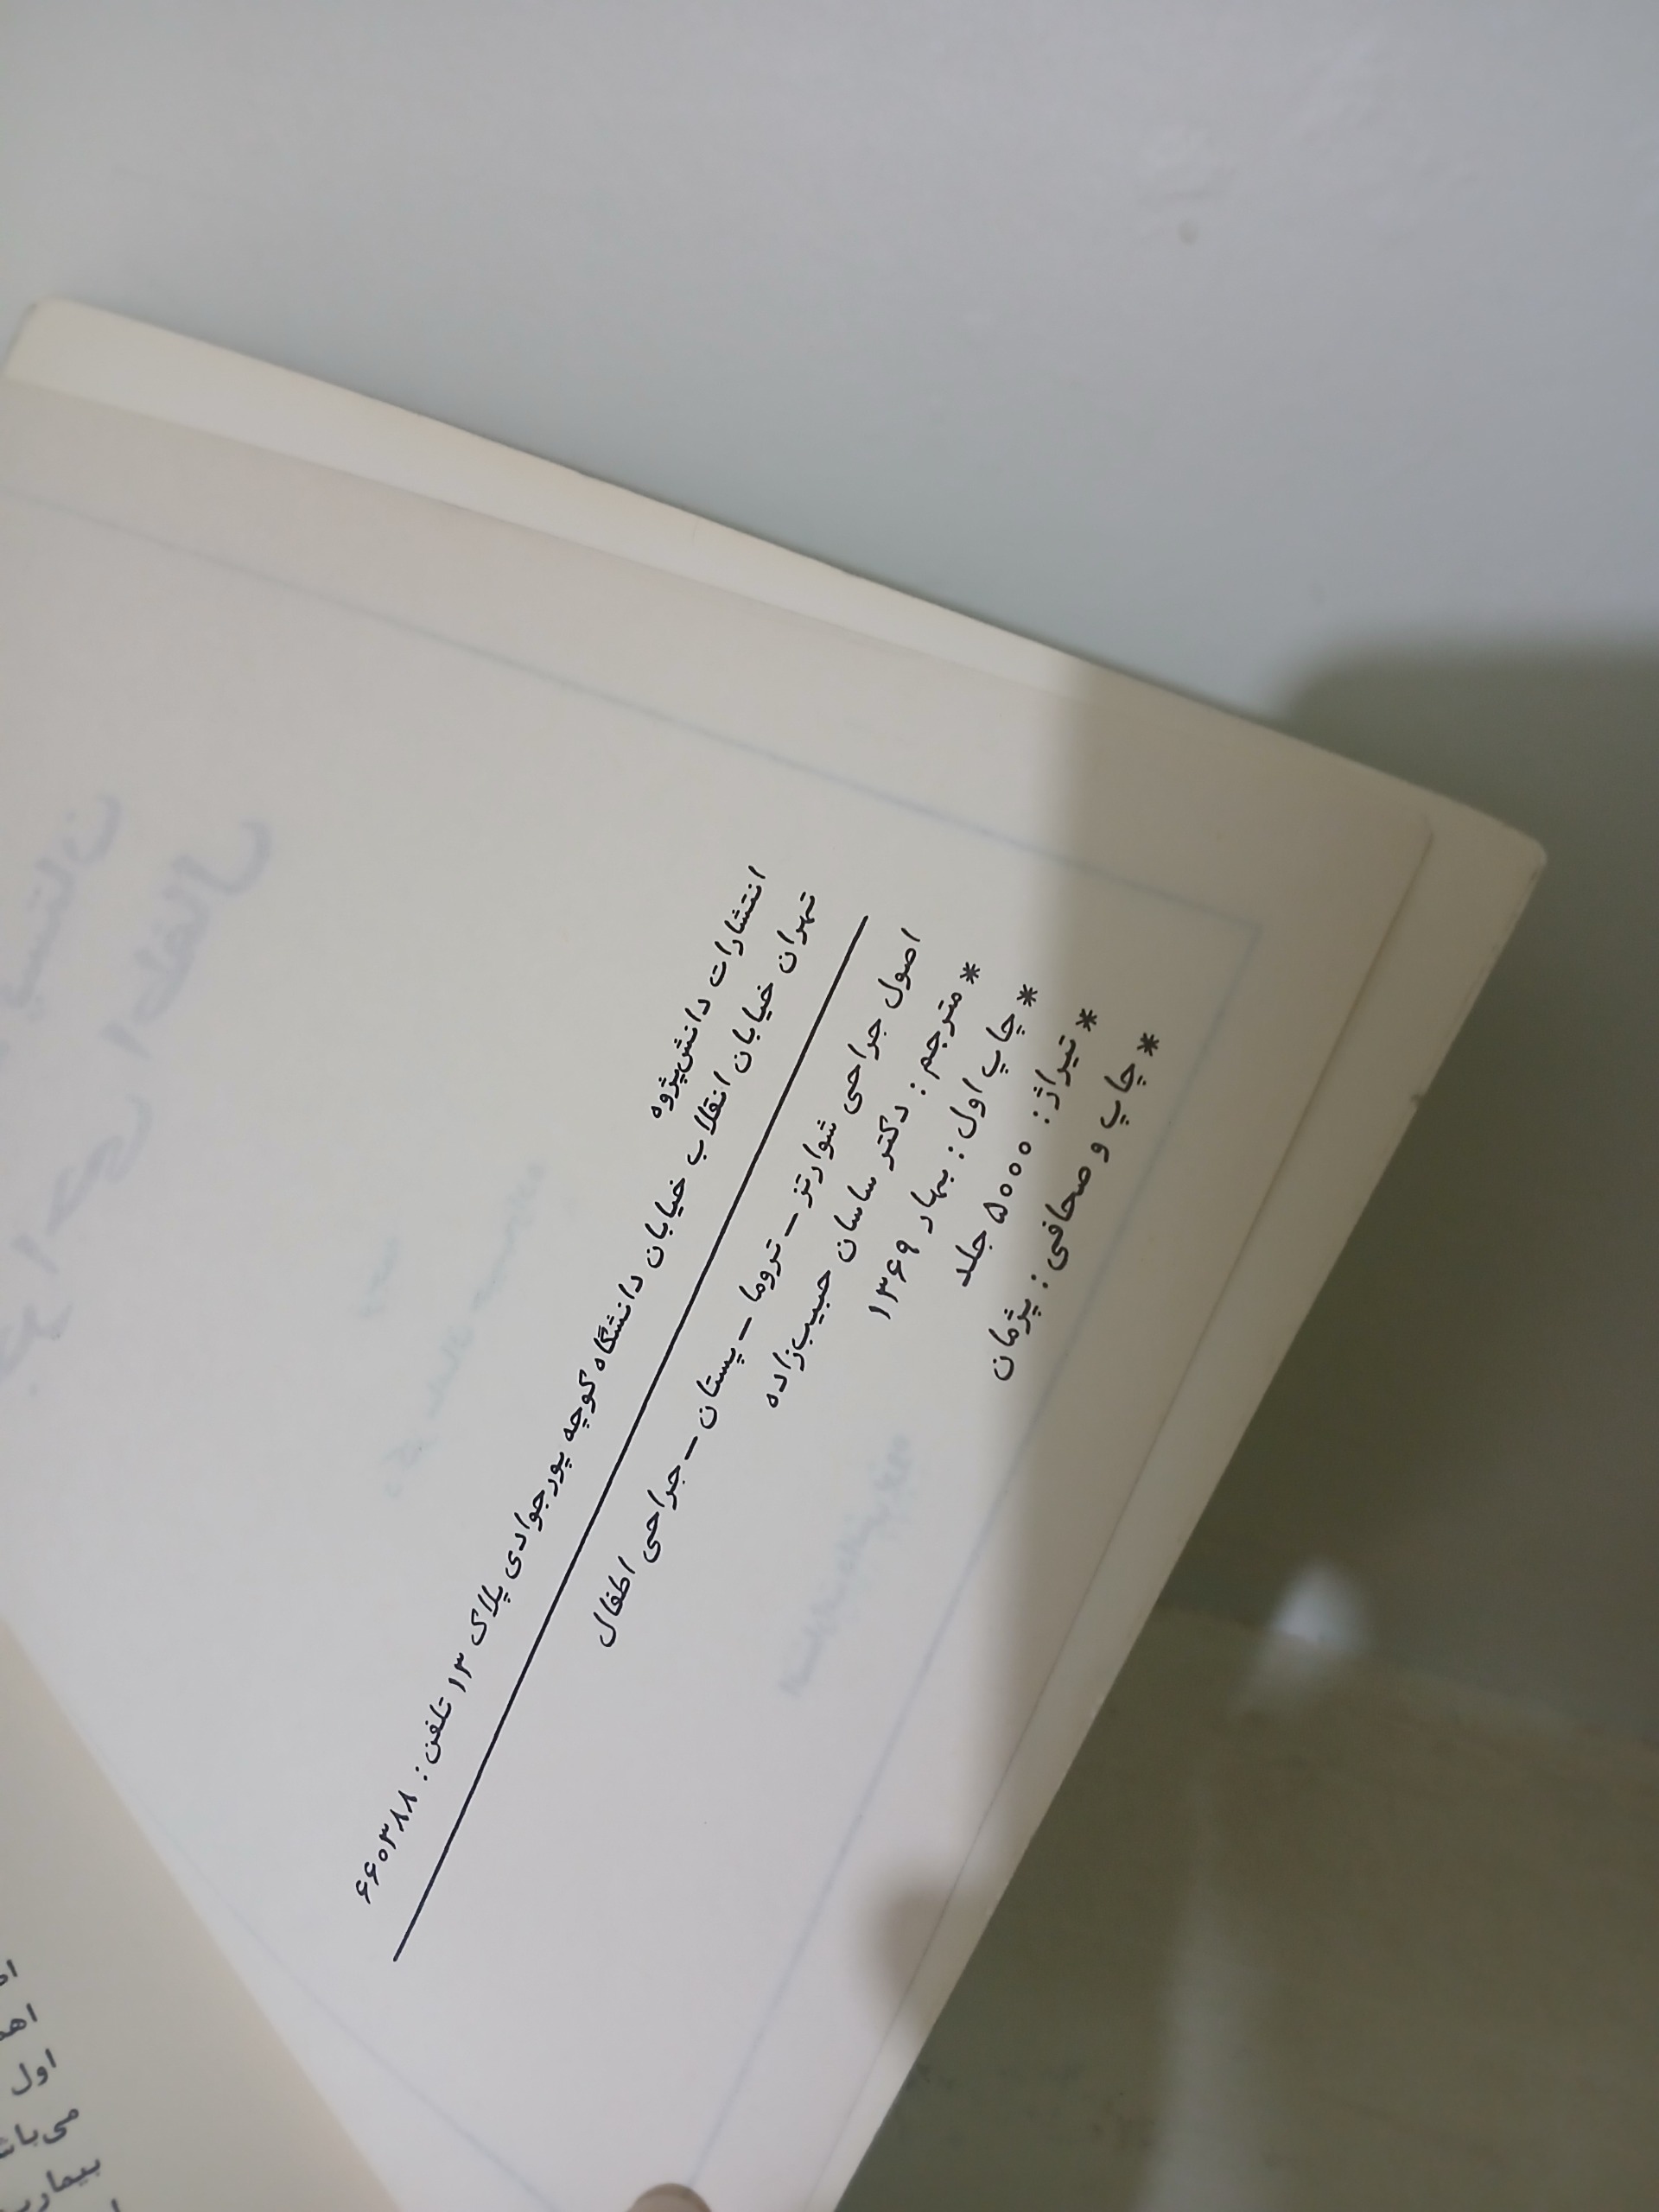 انتشارات دانش‌پژوه
تهران خیابان انقلاب خیابان دانشگاه کوچه پورجوادی پلاک ۱۳ تلفن: ۶۶۰۳۸۸
اصول جراحی شوارتز – تروما – پستان – جراحی اطفال
* مترجم: دکتر ساسان حبیب‌زاده
* چاپ اول: بهار ۱۳۶۹
* تیراژ: ۵۰۰۰ جلد
* چاپ و صحافی: پژمان
اول
می‌باش